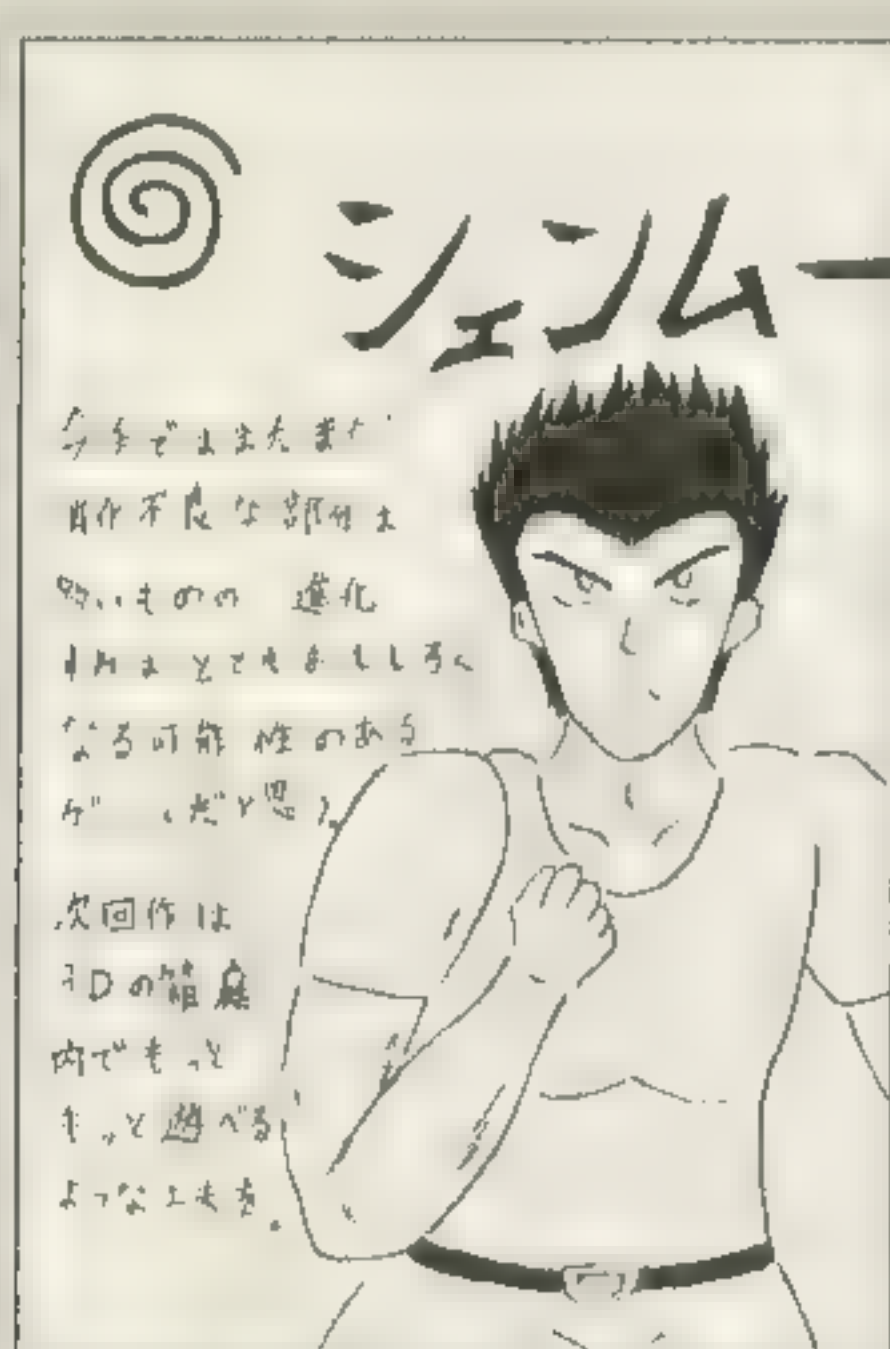 シェンムー
今までまだまだ
動作不良な部分は
多いものの 進化
とてもおもしろく
なる可能性のある
だと思う。
次回作は
3Dの箱庭
内でもっと
もっと遊べる
ような工夫を。